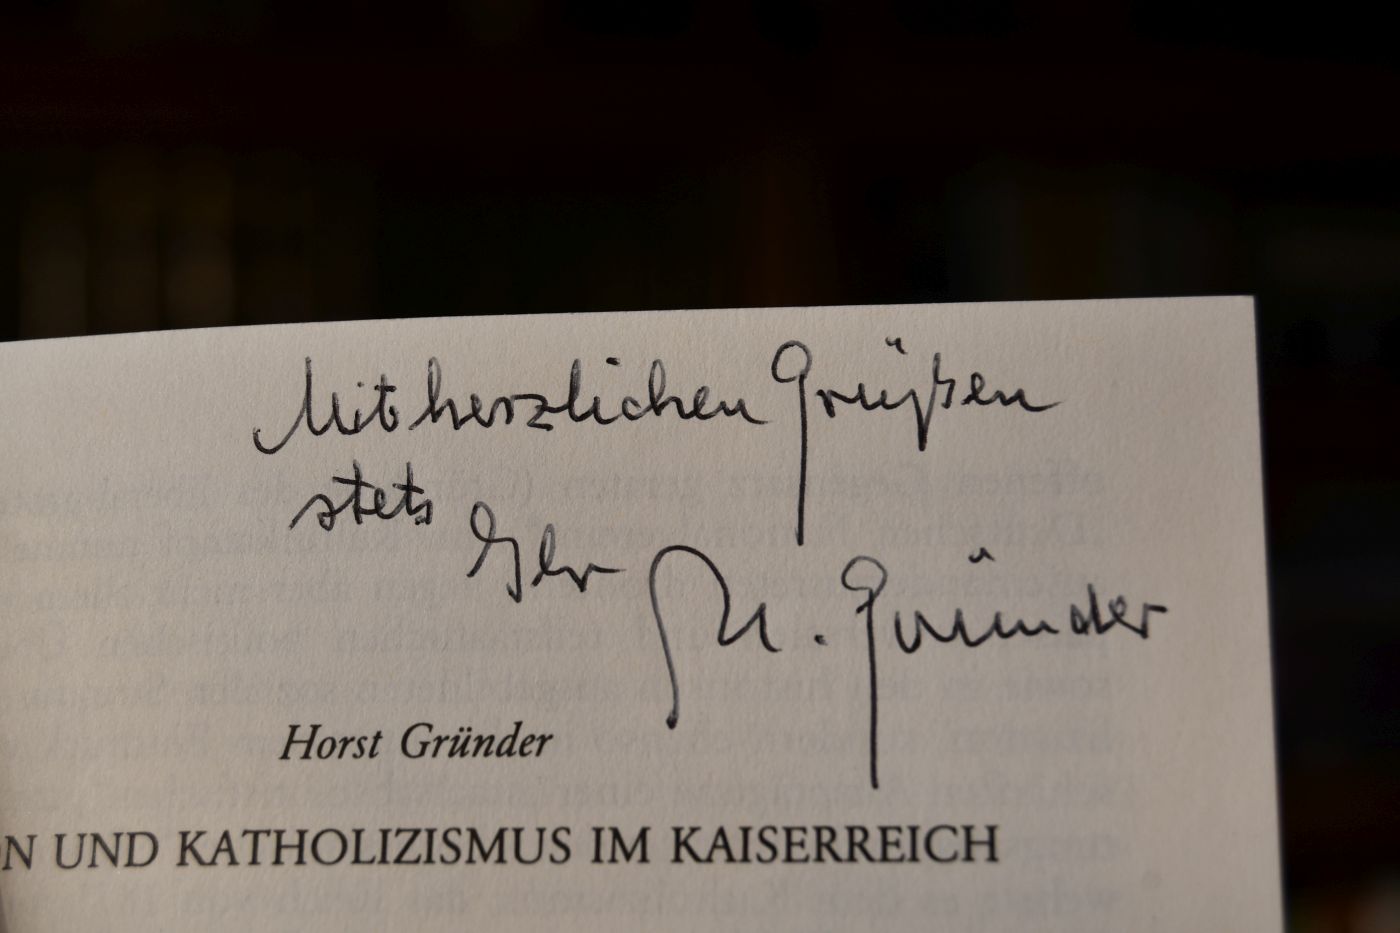 Mit herzlichen Grüßen
stets Ihr H. Gründer
Horst Gründer
ON UND KATHOLIZISMUS IM KAISERREICH